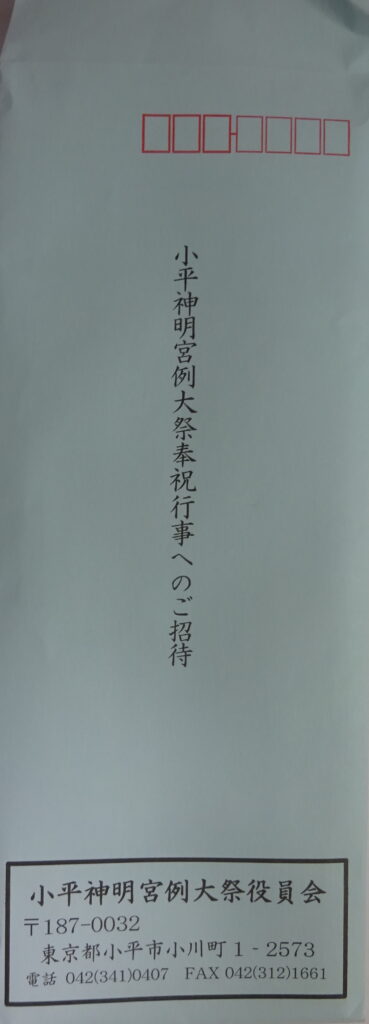 小平神明宮例大祭奉祝行事へのご招待
小平神明宮例大祭役員会
〒187-0032
東京都小平市小川町1-2573
電話 042(341)0407 FAX 042(312)1661